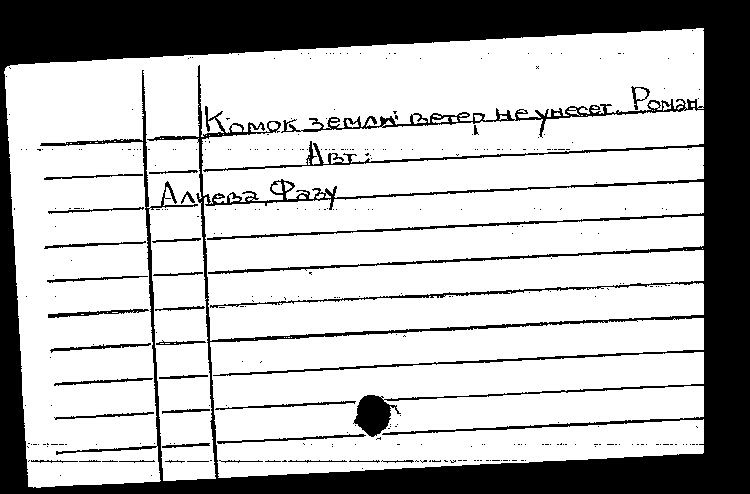 Комок земли ветер не унесет. Роман.
Авт:
Алиева Фазу